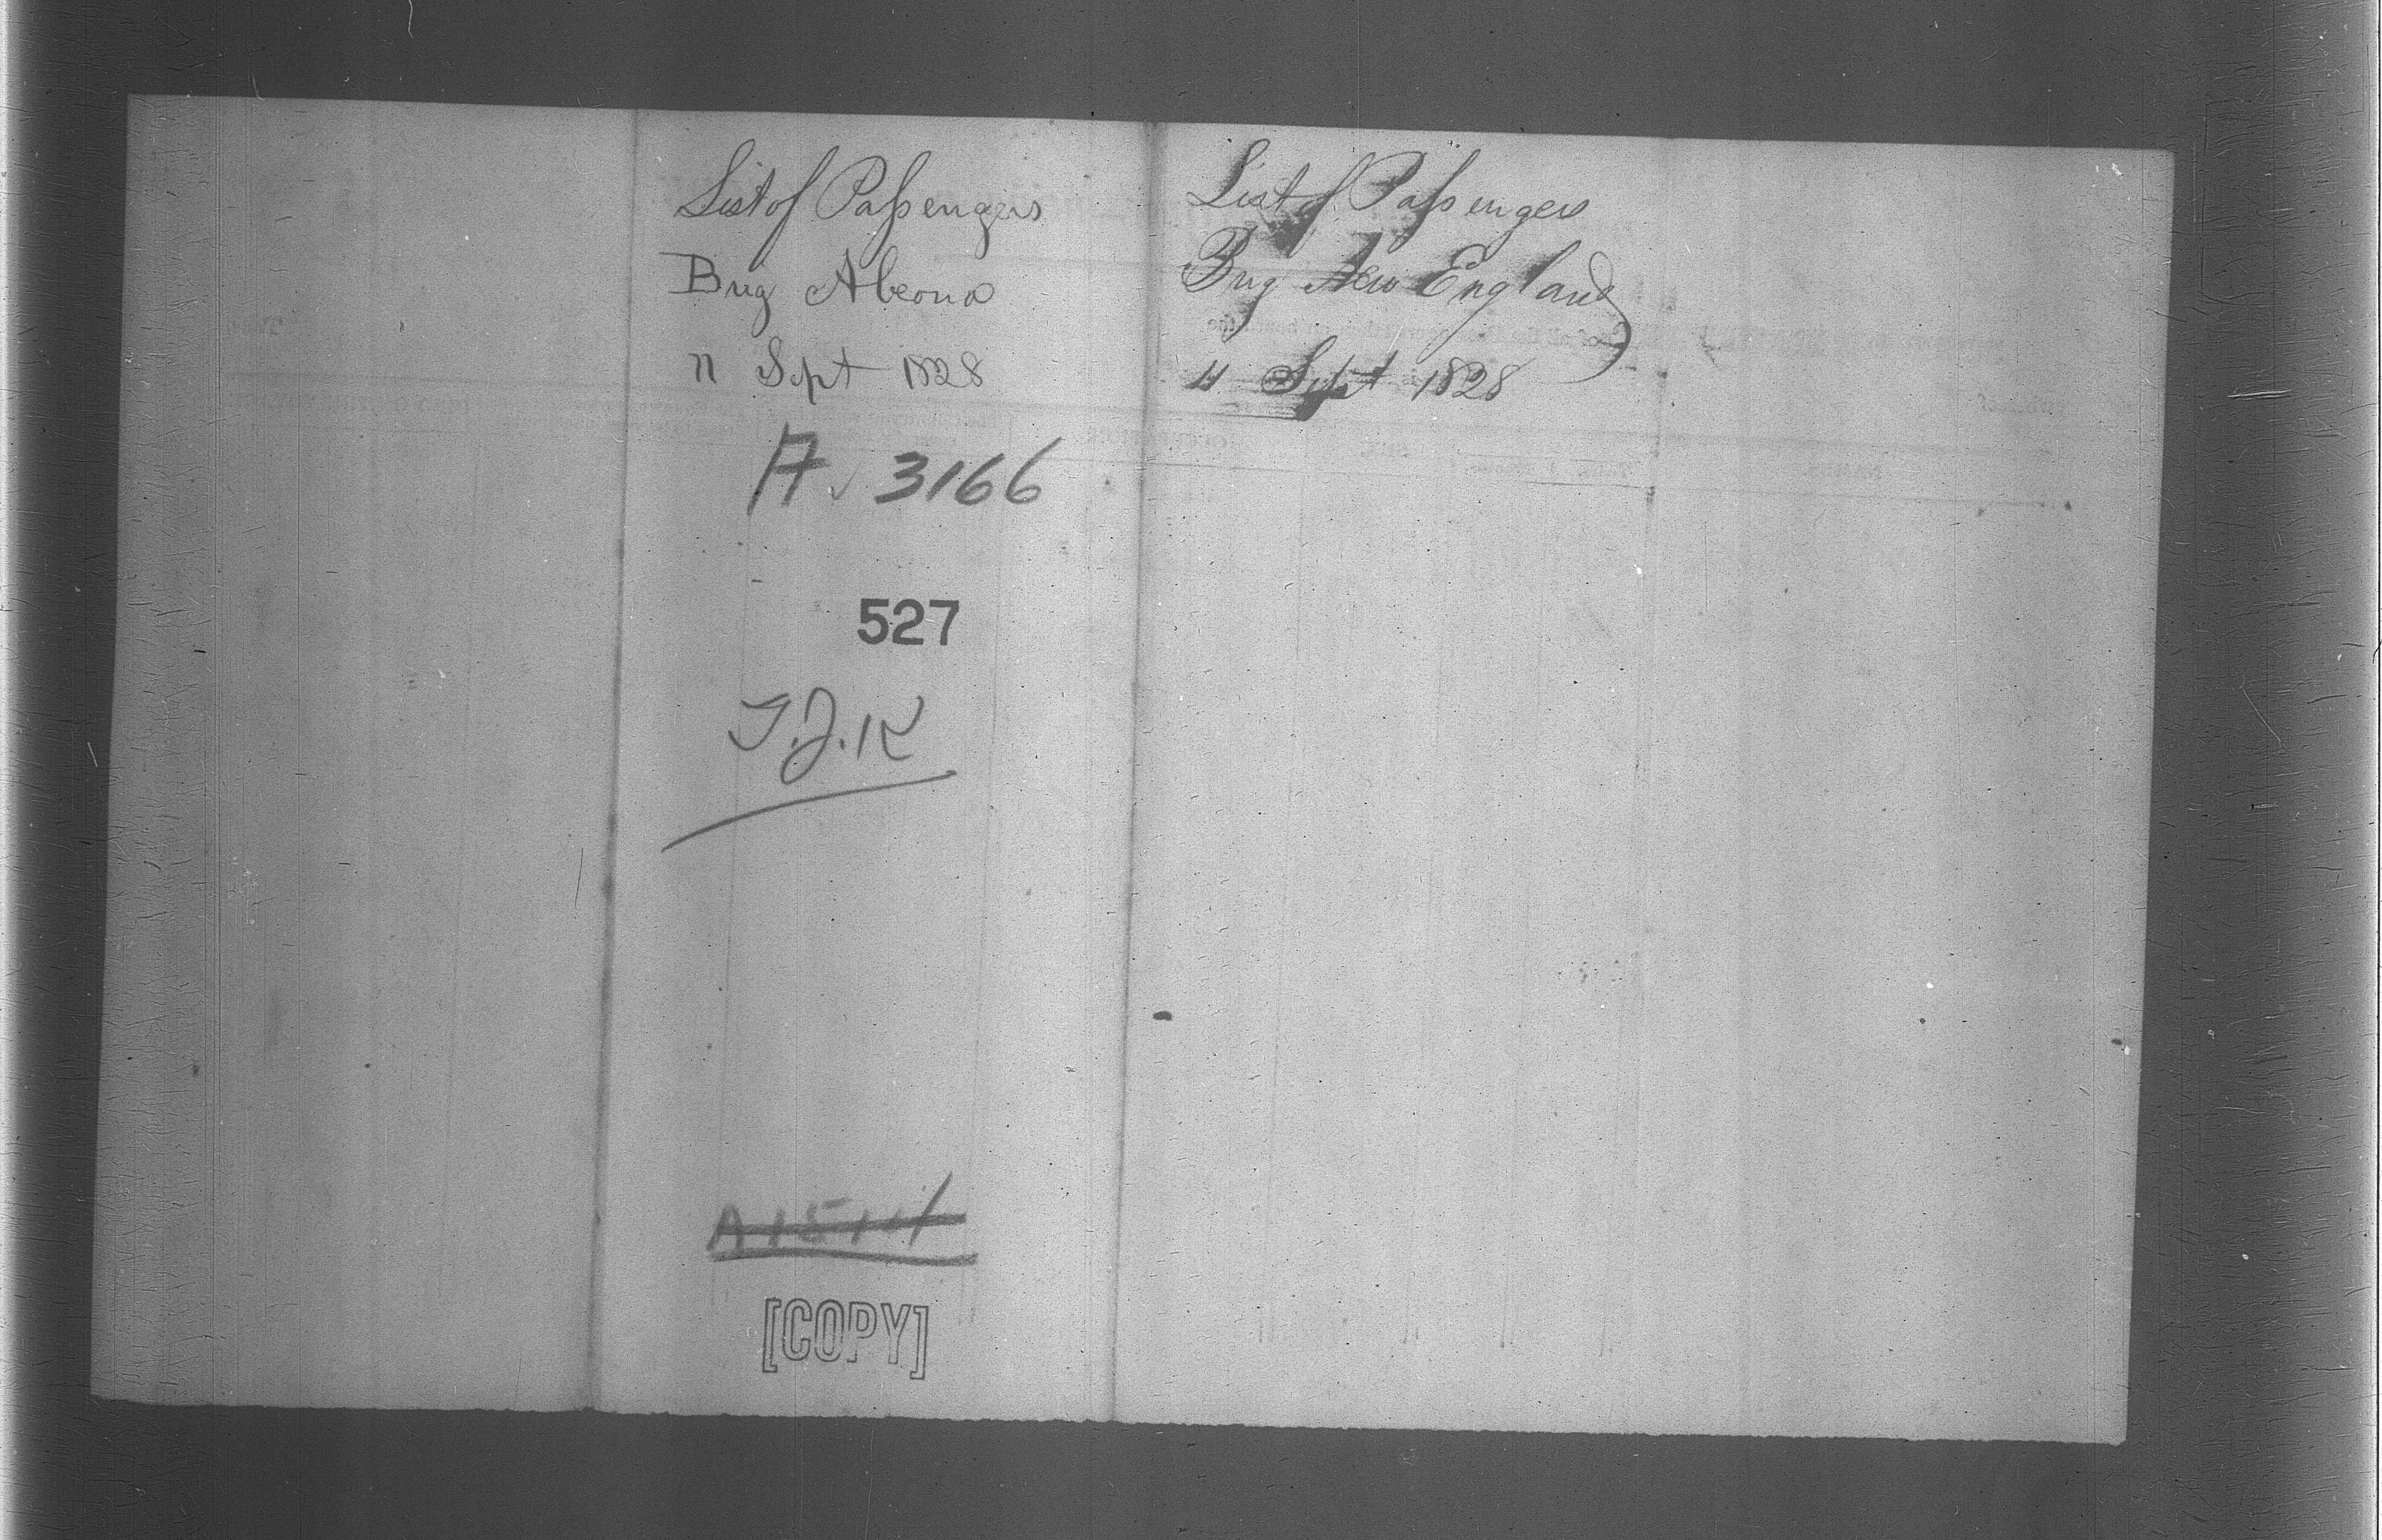 List of Passengers
Brig Abeona
11 Sept 1828
A 3166
527
[COPY]
List of Passengers
Brig New England
11 Sept 1828